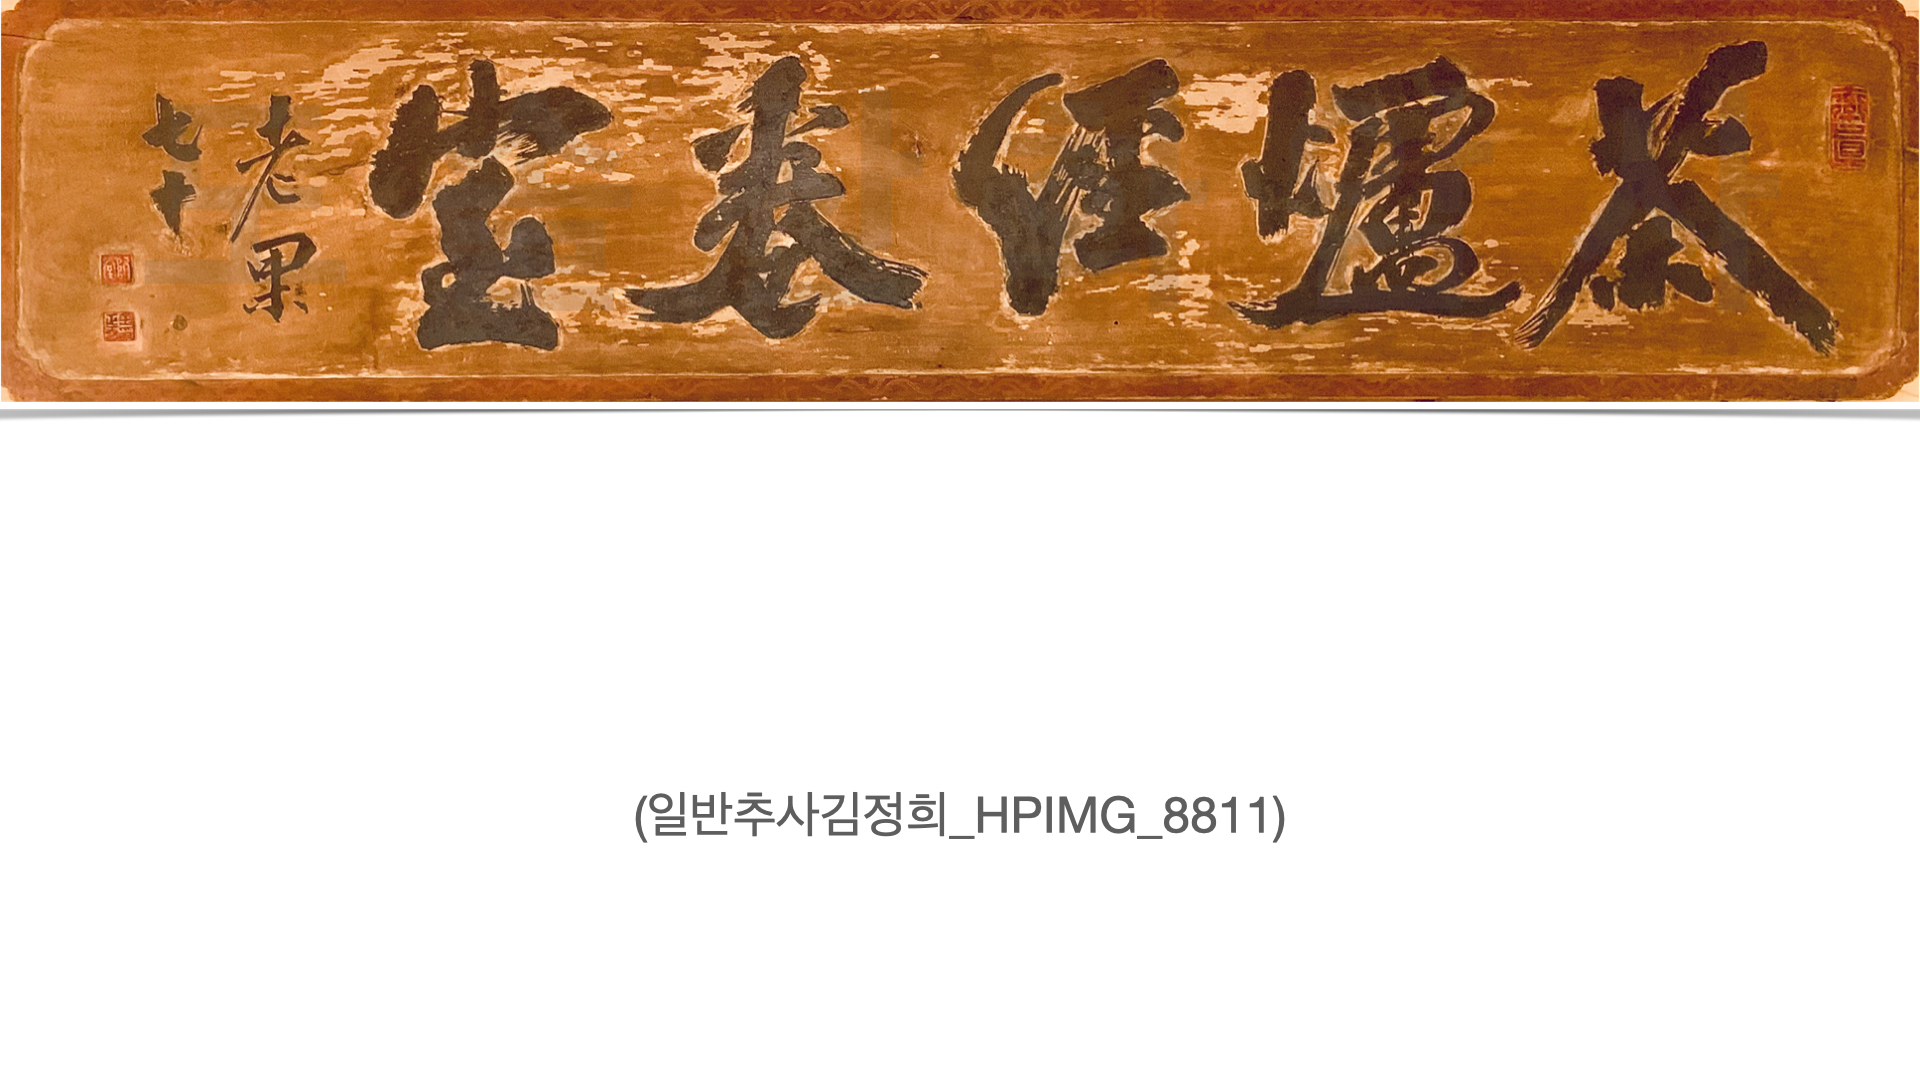 茶爐經卷室
老果
七十
(일반추사김정희_HPIMG_8811)